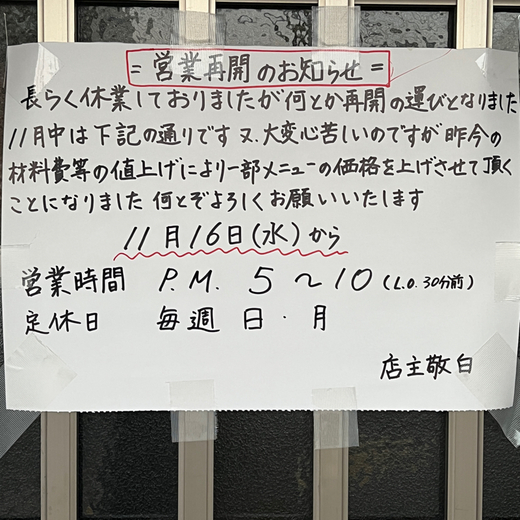 = 営業再開のお知らせ =
長らく休業しておりましたが何とか再開の運びとなりました
11月中は下記の通りです 又、大変心苦しいのですが昨今の
材料費等の値上げにより一部メニューの価格を上げさせて頂く
ことになりました 何とぞよろしくお願いいたします
11月16日(水)から
営業時間 P.M. 5～10 (L.O. 30分前)
定休日 毎週 日・月
店主敬白